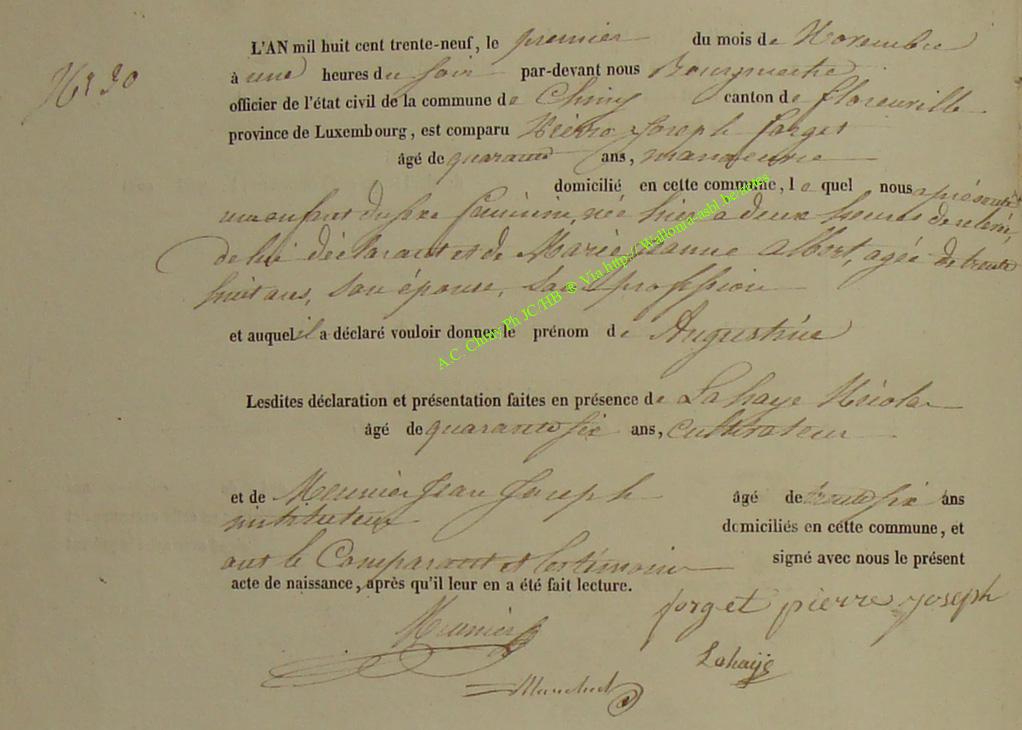 N° 30
L'AN mil huit cent trente-neuf, le premier du mois de Novembre
à une heures du soir par-devant nous Bourgmestre
officier de l'état civil de la commune de Chiny canton de florenville
province de Luxembourg, est comparu Pierre Joseph forget
âgé de quarante ans, manoeuvre
domicilié en cette commune, le quel nous a présenté
un enfant du sexe féminin, née hier a deux heures de relevée,
de lui déclarant et de Marie Jeanne albert, agée de trente
huit ans, son épouse, sans profession
et auquel il a déclaré vouloir donner le prénom de Augustine
Lesdites déclaration et présentation faites en présence de Lahaye Nicolas
âgé de quarante six ans, cultivateur
et de Meunier Jean Joseph âgé de trente six ans
instituteur domiciliés en cette commune, et
ont le Comparant et les témoins signé avec nous le présent
acte de naissance, après qu'il leur en a été fait lecture.
forget pierre joseph
Meunier
Lahaÿe
A.C. Chiny Ph JC/HB @ Via http://Wallonia-asbl.be/actes